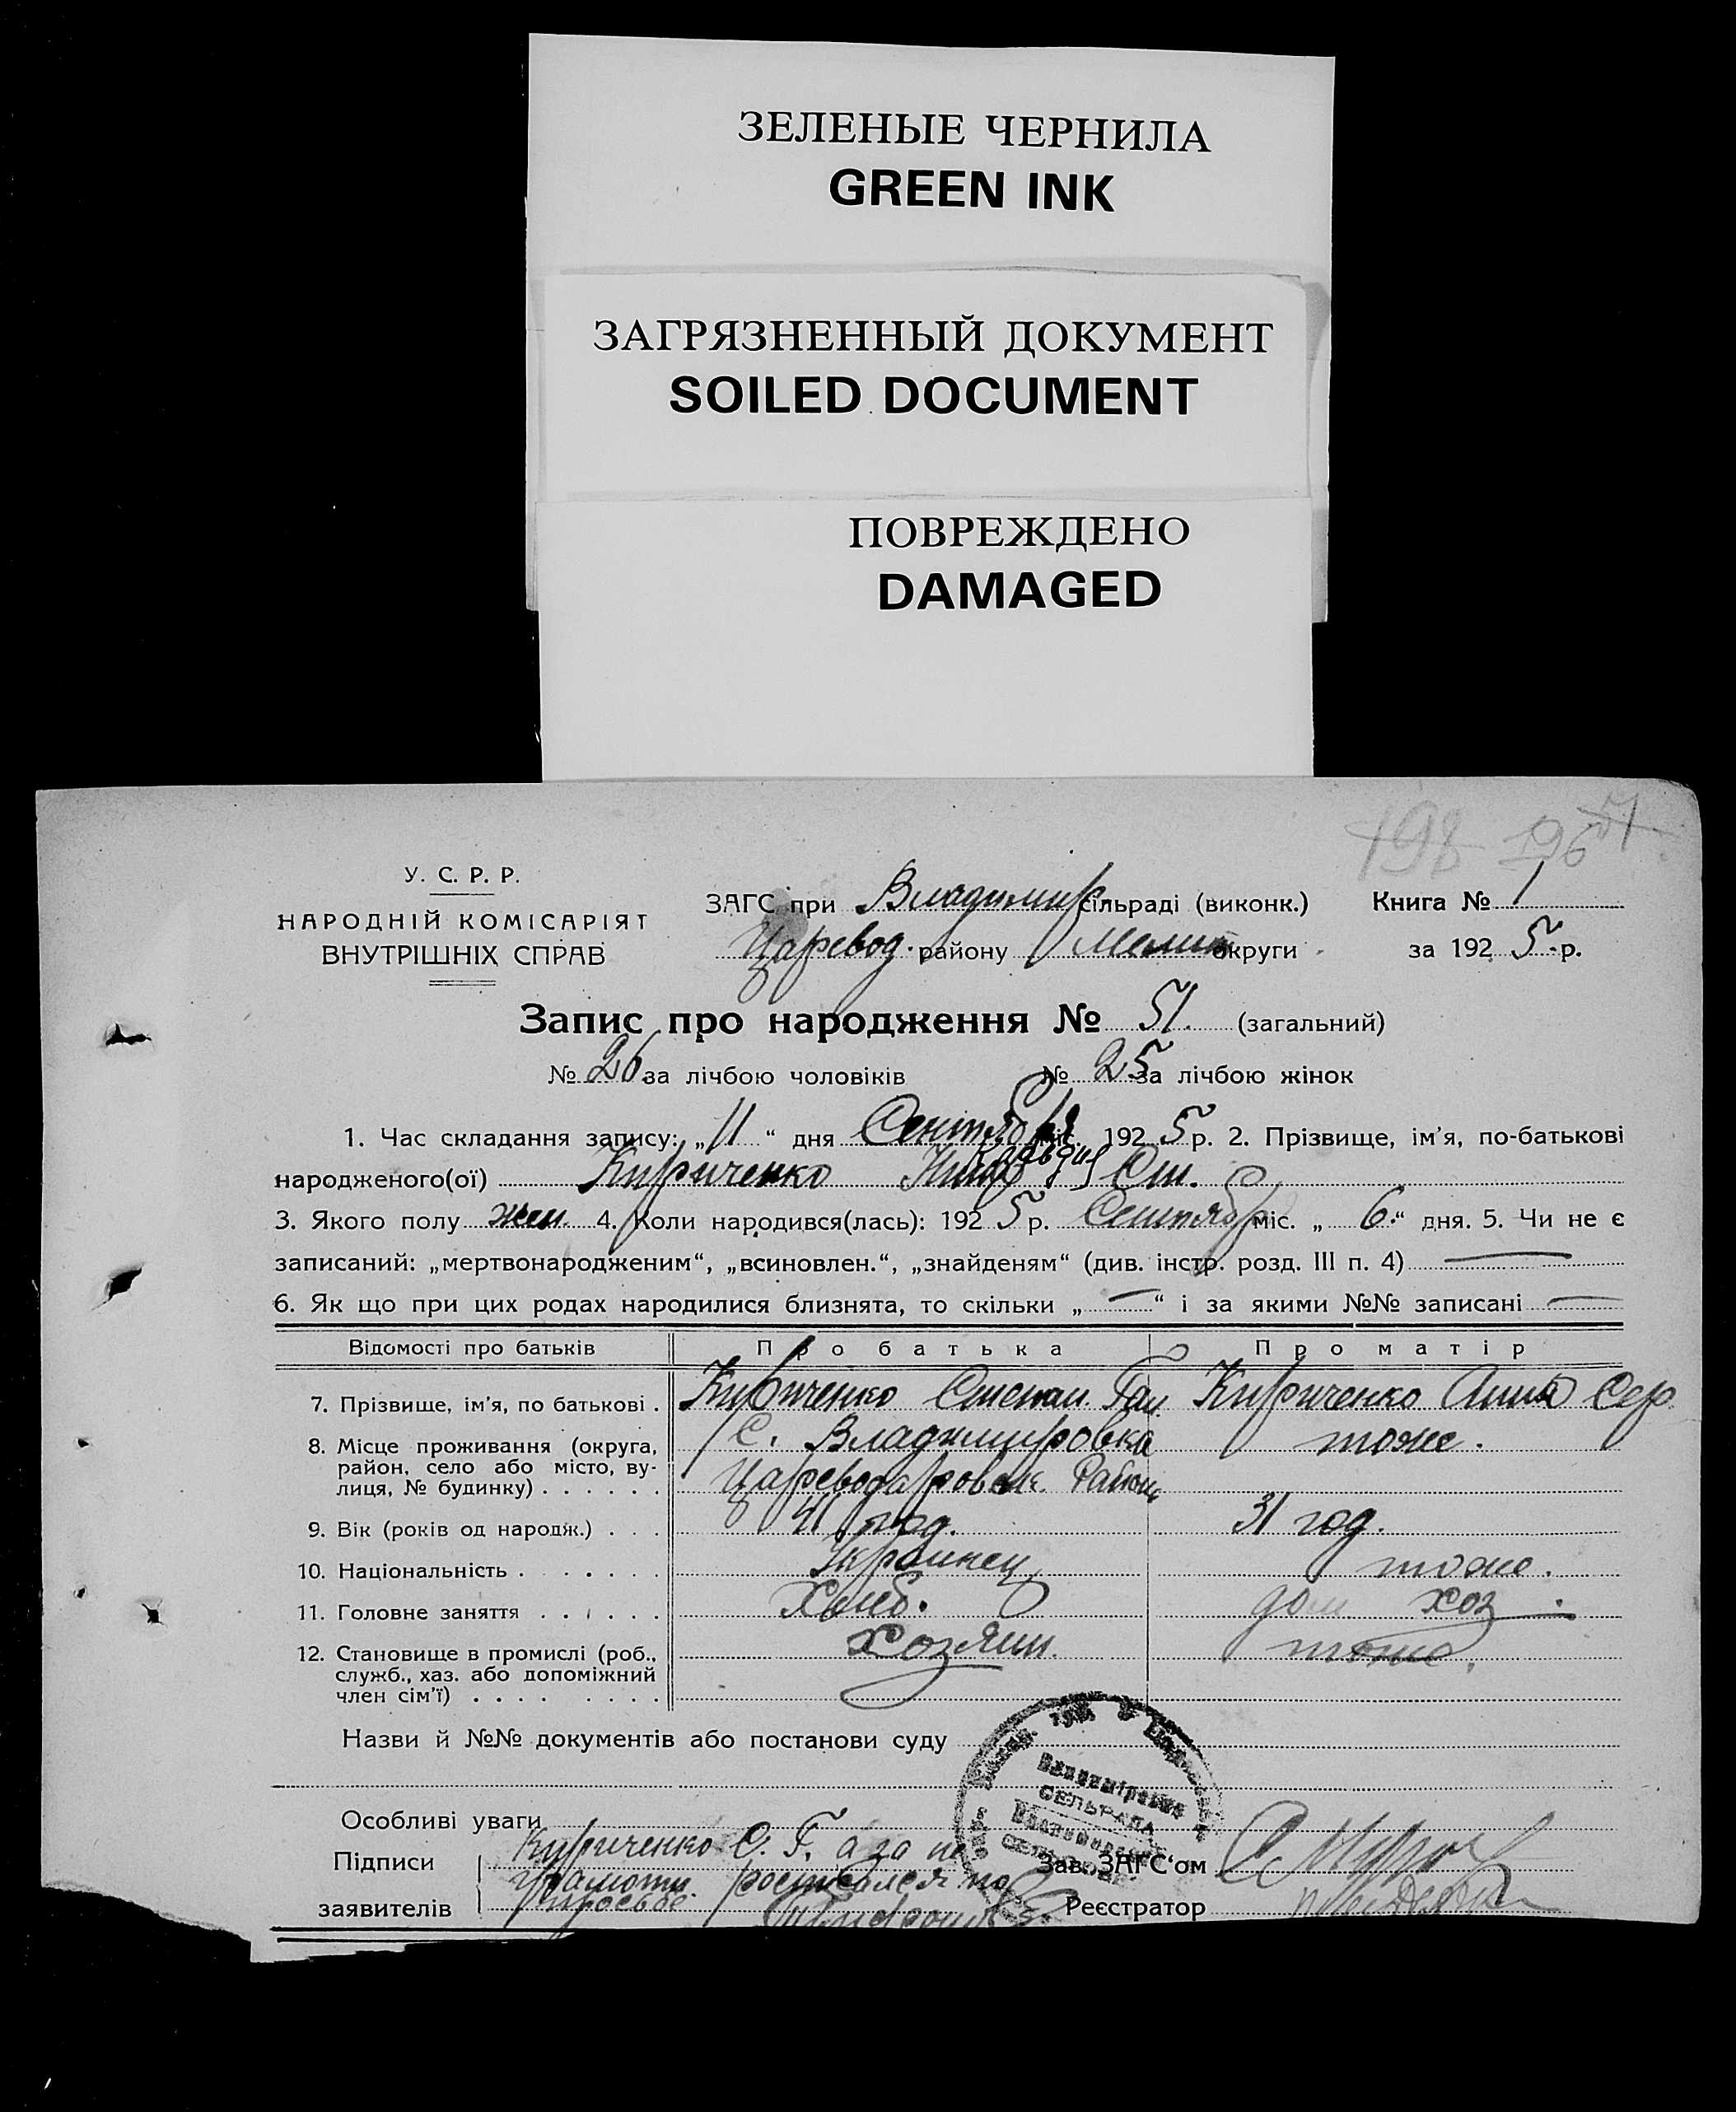 ЗЕЛЕНЫЕ ЧЕРНИЛА
GREEN INK
ЗАГРЯЗНЕННЫЙ ДОКУМЕНТ
SOILED DOCUMENT
ПОВРЕЖДЕНО
DAMAGED
198 196 51
У. С. Р. Р.
НАРОДНІЙ КОМІСАРІЯТ
ВНУТРІШНІХ СПРАВ
ЗАГС при Владимир. сільраді (виконк.) Книга № 1
Царевод. району Мелит округи за 192 5 р.
Запис про народження № 51. (загальний)
№ 26 за лічбою чоловіків № 25 за лічбою жінок
1. Час складання запису: „11“ дня Сентября міс. 192 5 р. 2. Прізвище, ім’я, по-батькові
народженого(ої) Кириченко Ст.
3. Якого полу жен. 4. Коли народився(лась): 192 5 р. Сентябр міс. „6.“ дня. 5. Чи не є
записаний: „мертвонародженим“, „всиновлен.“, „знайденям“ (див. інстр. розд. III п. 4) —
6. Як що при цих родах народилися близнята, то скільки „—“ і за якими №№ записані —
Відомості про батьків Про батька Про матір
7. Прізвище, ім’я, по батькові . Кириченко Степан. Кириченко Анна Сер.
8. Місце проживання (округа, район, село або місто, вулиця, № будинку) . . . . . . С. Владимировка тоже.
Цареводаровск. Район
9. Вік (років од народж.) . . . 41 год. 31 год.
10. Національність . . . . . . . Украинец тоже.
11. Головне заняття . . . . . . Хлеб. дом хоз.
12. Становище в промислі (роб., служб., хаз. або допоміжний член сім’ї) . . . . . . . . Хозяин. тоже.
Назви й №№ документів або постанови суду
Особливі уваги
СЕЛЬРАДА
Підписи
заявителів
Кириченко С. Г. а за не
грамотн. росписался по
просьбе
Зав. ЗАГС‘ом
Реєстратор